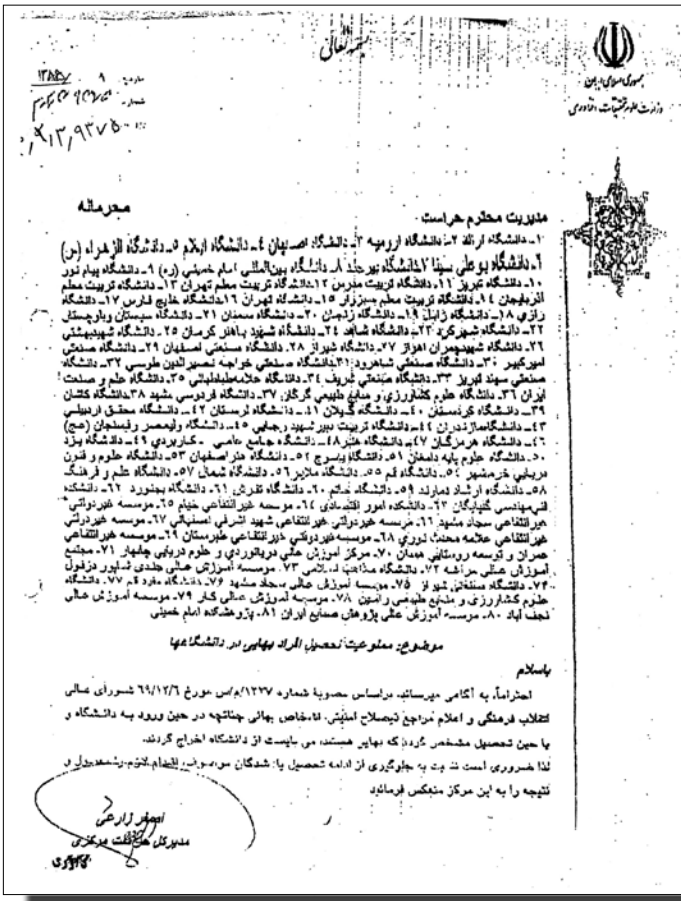 بسمه تعالی
جمهوری اسلامی ایران
وزارت علوم، تحقیقات و فناوری
تاریخ
شماره
محرمانه
مدیریت محترم حراست
۱- دانشگاه اراک ۲- دانشگاه ارومیه ۳- دانشگاه اصفهان ٤- دانشگاه ایلام ۵- دانشگاه الزهراء (س)
۶- دانشگاه بوعلی سینا ۷- دانشگاه بیرجند ۸- دانشگاه بین‌المللی امام خمینی (ره) ۹- دانشگاه پیام نور
۱۰- دانشگاه تبریز ۱۱- دانشگاه تربیت مدرس ۱۲- دانشگاه تربیت معلم تهران ۱۳- دانشگاه تربیت معلم
آذربایجان ۱٤- دانشگاه تربیت معلم سبزوار ۱۵- دانشگاه تهران ۱۶- دانشگاه خلیج فارس ۱۷- دانشگاه
رازی ۱۸- دانشگاه زابل ۱۹- دانشگاه زنجان ۲۰- دانشگاه سمنان ۲۱- دانشگاه سیستان وبلوچستان
۲۲- دانشگاه شهرکرد ۲۳- دانشگاه شاهد ۲٤- دانشگاه شهید باهنر کرمان ۲۵- دانشگاه شهیدبهشتی
۲۶- دانشگاه شهیدچمران اهواز ۲۷- دانشگاه شیراز ۲۸- دانشگاه صنعتی اصفهان ۲۹- دانشگاه صنعتی
امیرکبیر ۳۰- دانشگاه صنعتی شاهرود ۳۱- دانشگاه صنعتی خواجه نصیرالدین طوسی ۳۲- دانشگاه
صنعتی سهند تبریز ۳۳- دانشگاه صنعتی شریف ۳٤- دانشگاه علامه‌طباطبائی ۳۵- دانشگاه علم و صنعت
ایران ۳۶- دانشگاه علوم کشاورزی و منابع طبیعی گرگان ۳۷- دانشگاه فردوسی مشهد ۳۸- دانشگاه کاشان
۳۹- دانشگاه کردستان ٤۰- دانشگاه گیلان ٤۱- دانشگاه لرستان ٤۲- دانشگاه محقق اردبیلی
٤۳- دانشگاه مازندران ٤٤- دانشگاه تربیت دبیر شهید رجایی ٤۵- دانشگاه ولیعصر رفسنجان (عج)
٤۶- دانشگاه هرمزگان ٤۷- دانشگاه هنر ٤۸- دانشگاه جامع علمی - کاربردی ٤۹- دانشگاه یزد
۵۰- دانشگاه علوم پایه دامغان ۵۱- دانشگاه یاسوج ۵۲- دانشگاه هنر اصفهان ۵۳- دانشگاه علوم و فنون
دریایی خرمشهر ۵٤- دانشگاه قم ۵۵- دانشگاه ملایر ۵۶- دانشگاه شمال ۵۷- دانشگاه علم و فرهنگ
۵۸- دانشگاه ارشاد دماوند ۵۹- دانشگاه خاتم ۶۰- دانشگاه تفرش ۶۱- دانشگاه بجنورد ۶۲- دانشکده
فنی‌مهندسی گلپایگان ۶۳- دانشکده امور اقتصادی ۶٤- موسسه غیرانتفاعی خیام ۶۵- موسسه غیردولتی
غیرانتفاعی سجاد مشهد ۶۶- موسسه غیردولتی غیرانتفاعی شهید اشرفی اصفهانی ۶۷- موسسه غیردولتی
غیرانتفاعی علامه محدث نوری ۶۸- موسسه غیردولتی غیرانتفاعی طبرستان ۶۹- موسسه غیرانتفاعی
عمران و توسعه روستایی همدان ۷۰- مرکز آموزش عالی دریانوردی و علوم دریایی چابهار ۷۱- مجتمع
آموزش عالی مراغه ۷۲- دانشگاه مذاهب اسلامی ۷۳- موسسه آموزش عالی جندی شاپور دزفول
۷٤- دانشگاه صنعتی شیراز ۷۵- موسسه آموزش عالی سجاد مشهد ۷۶- دانشگاه مفید قم ۷۷- دانشگاه
علوم کشاورزی و منابع طبیعی رامین ۷۸- موسسه آموزش عالی کار ۷۹- موسسه آموزش عالی
نجف آباد ۸۰- موسسه آموزش عالی پژوهش صنایع ایران ۸۱- پژوهشکده امام خمینی
موضوع: ممنوعیت تحصیل افراد بهایی در دانشگاهها
باسلام
احتراماً، به آگاهی میرساند براساس مصوبة شماره ۱۳۲۷/م/س مورخ ۶۹/۱۲/۶ شورای عالی
انقلاب فرهنگی و اعلام مراجع ذیصلاح امنیتی، اشخاص بهائی چنانچه در حین ورود به دانشگاه و
یا حین تحصیل مشخص گردد که بهایی هستند، می بایست از دانشگاه اخراج گردند.
لذا ضروری است نسبت به جلوگیری از ادامه تحصیل یاد شدگان موصوف، اقدام لازم را معمول و
نتیجه را به این مرکز منعکس فرمائید
اصغر زارعی
مدیرکل حراست مرکزی